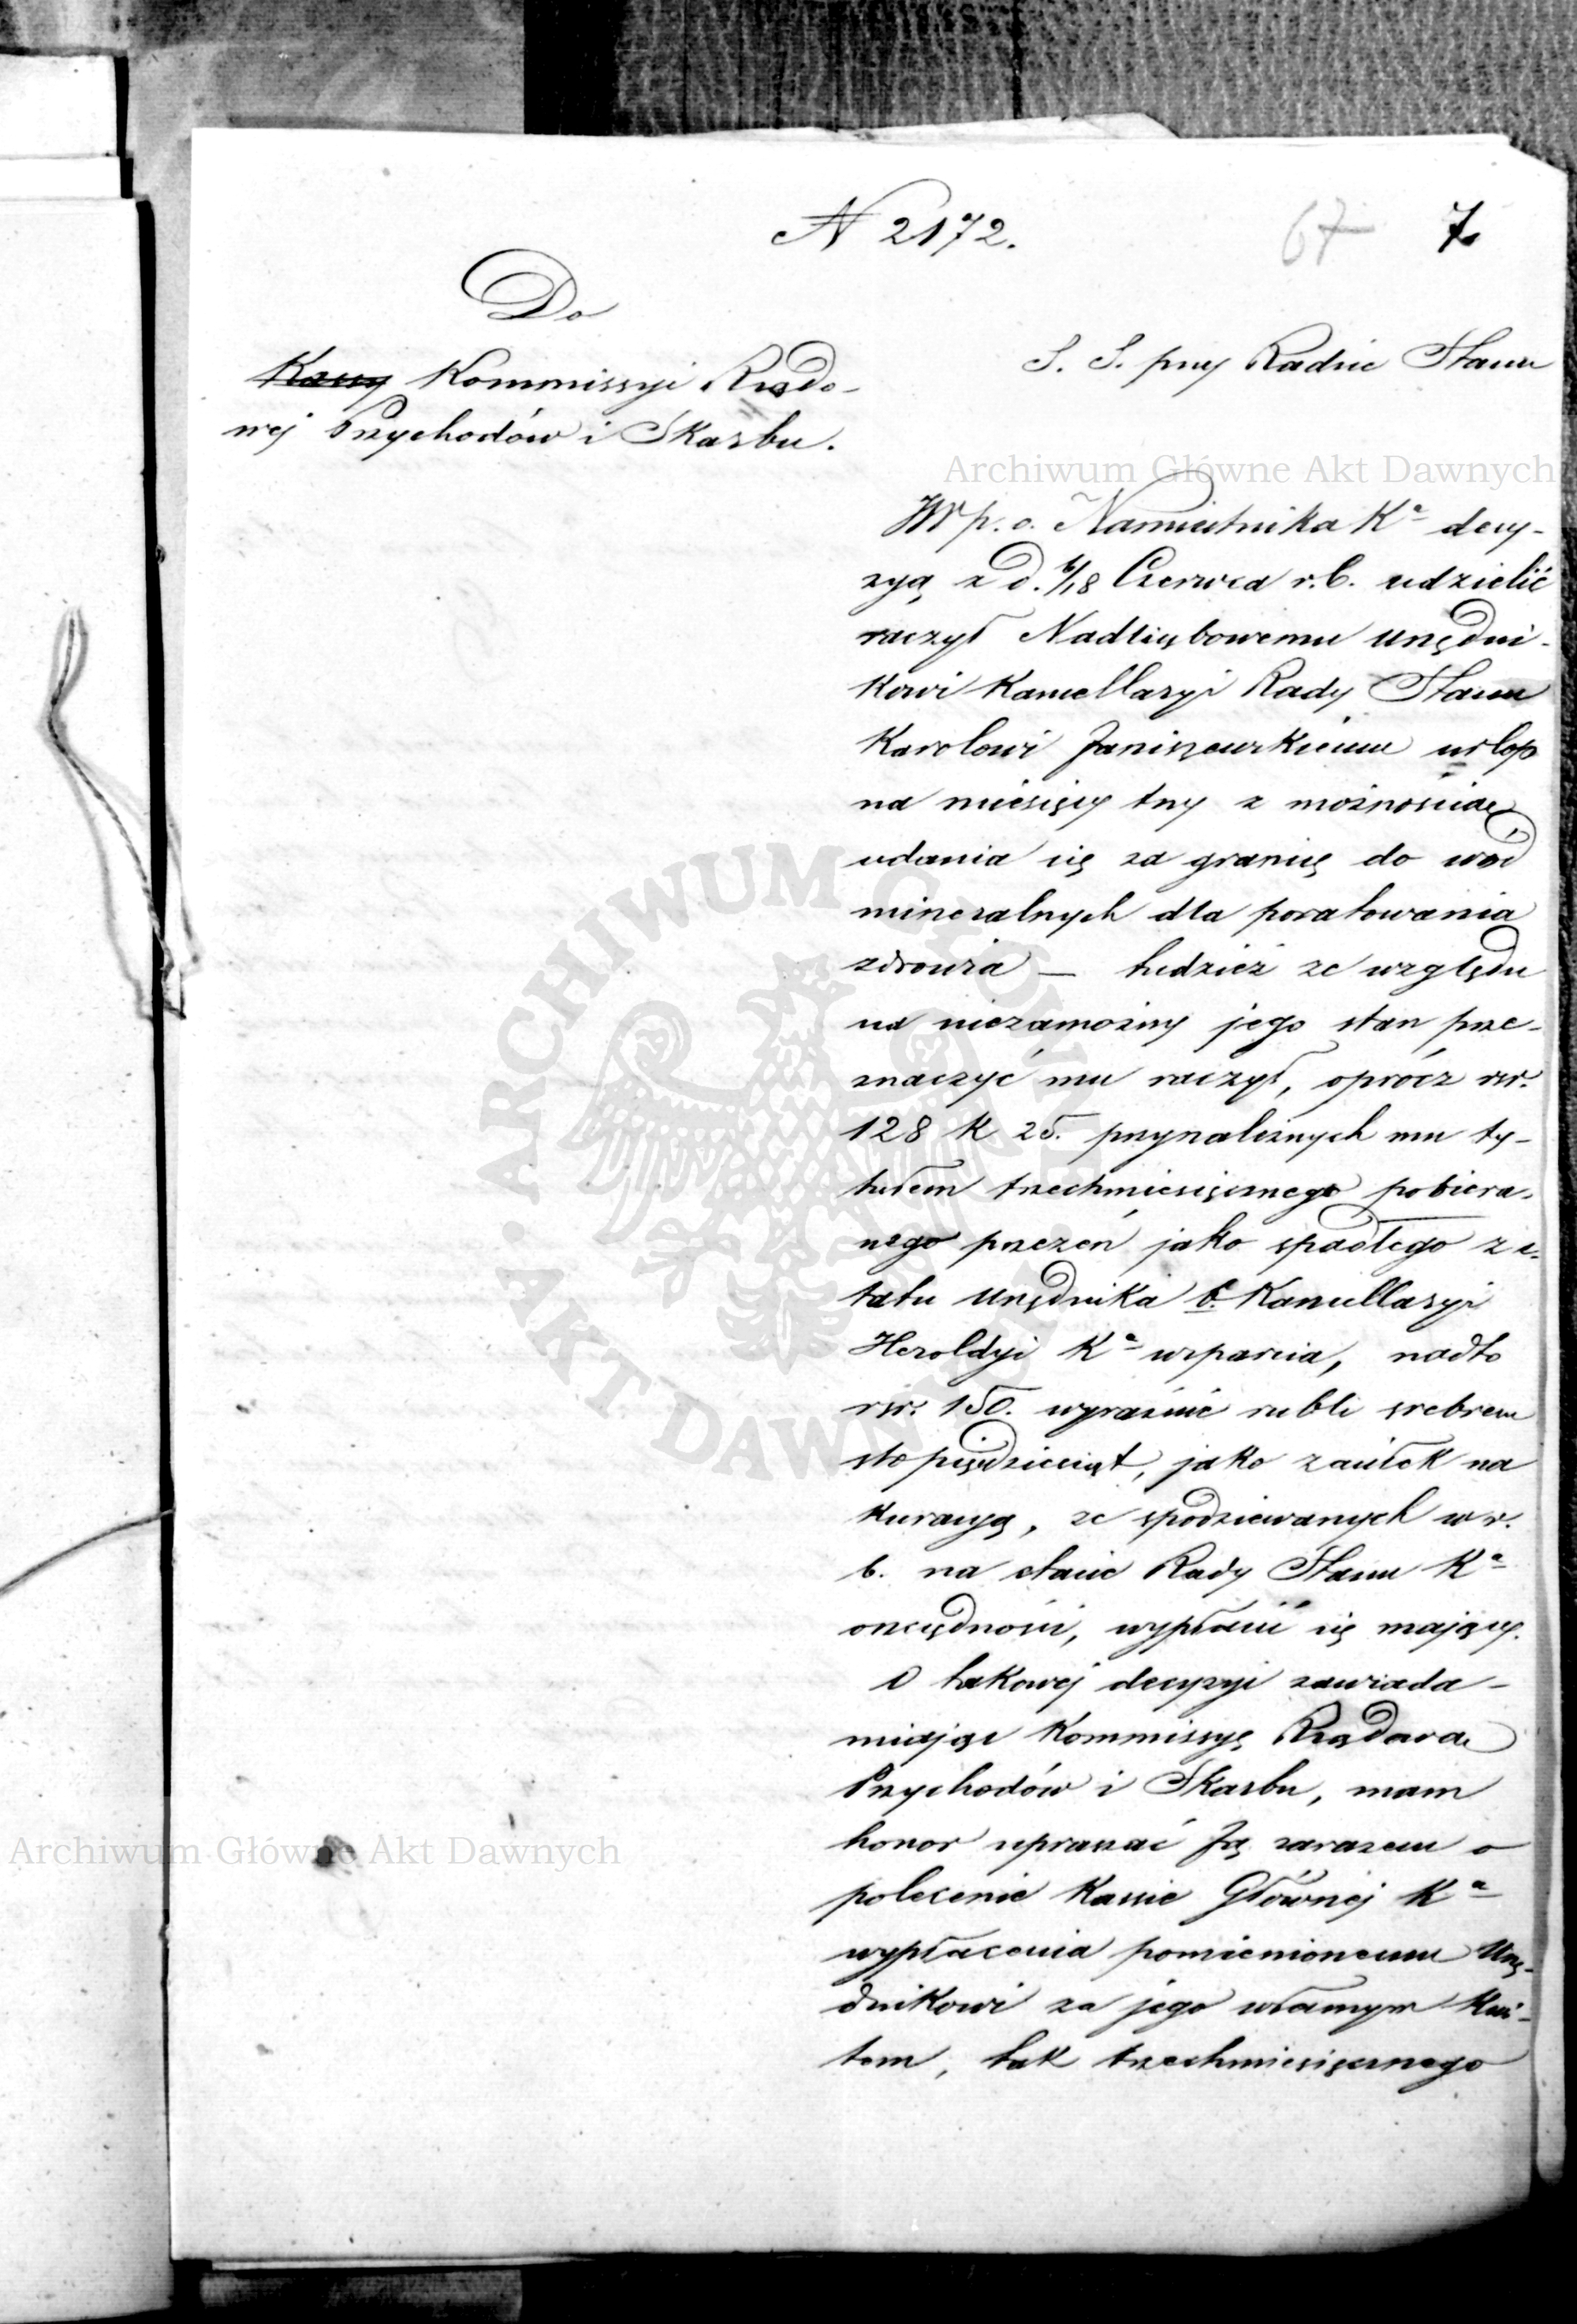 N 2172.
67 7
Do
Kassy Kommissyi Rządo-
wej Przychodów i Skarbu.
S. S. przy Radzie Stanu
Archiwum Główne Akt Dawnych
JW p. o. Namiestnika Kᵃ decy-
zyą z d. 6/18 Czerwca r. b. udzielić
raczył Nadliczbowemu Urzędni-
kowi Kancellaryi Rady Stanu
Karolowi Janiszewskiemu urlop
na miesięcy trzy z możnością
udania się za granicę do wód
mineralnych dla poratowania
zdrowia — tudzież ze względu
na niezamożny jego stan prze-
znaczyć mu raczył, oprócz rsr.
128 k 25. przynależnych mu ty-
tułem trzechmiesięcznego pobiera-
nego przezeń jako spadłego z e-
tatu Urzędnika b. Kancellaryi
Heroldyi Kᵃ wsparcia, nadto
rsr. 150. wyraźnie rubli srebrem
sto pięćdziesiąt, jako zasiłek na
kuracyą, ze spodziewanych w r.
b. na etacie Rady Stanu Kᵃ
oszczędności, wypłacić się mający.
O takowej decyzyi zawiada-
miając Kommissyę Rządową
Przychodów i Skarbu, mam
honor upraszać Ją zarazem o
polecenie Kassie Głównej Kᵃ
wypłacenia pomienionemu Urzę-
dnikowi za jego własnym kwi-
tem, tak trzechmiesięcznego
Archiwum Główne Akt Dawnych
ARCHIWUM GŁÓWNE
AKT DAWNYCH